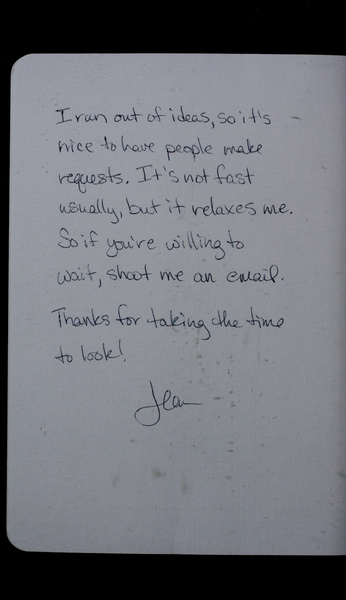 I run out of ideas, so it's -
nice to have people make
requests. It's not fast
usually, but it relaxes me.
So if you're willing to
wait, shoot me an email.
Thanks for taking the time
to look!
Jean